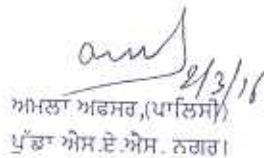 2/3/16
ਅਮਲਾ ਅਫਸਰ,(ਪਾਲਿਸੀ)
ਪੁੱਡਾ ਐਸ.ਏ.ਐਸ. ਨਗਰ।